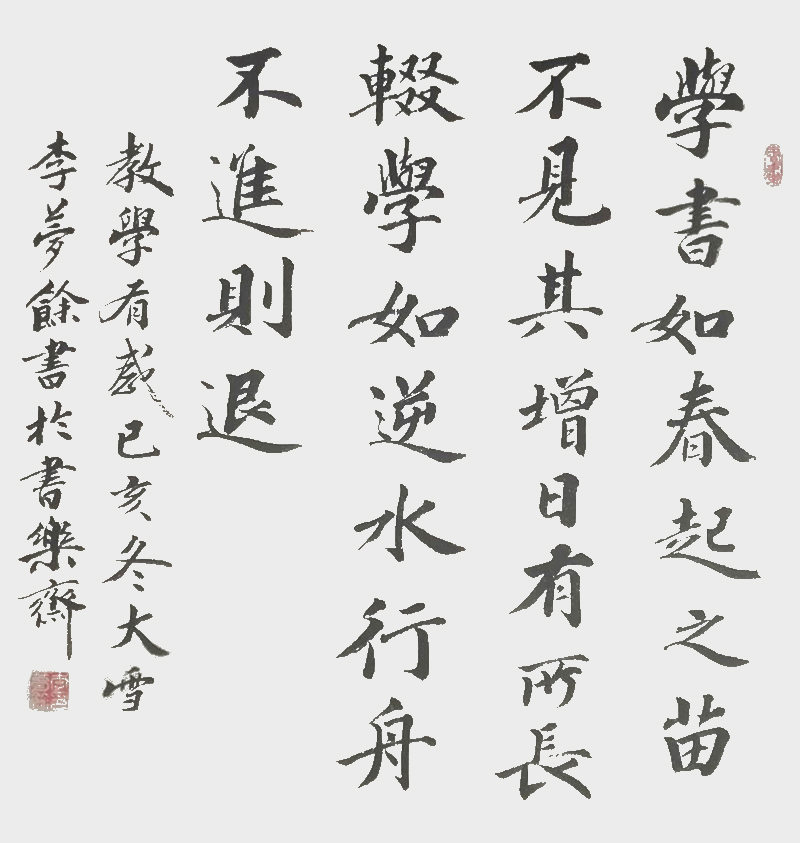 學書如春起之苗
不見其增日有所長
輟學如逆水行舟
不進則退
教學有感己亥冬大雪
李夢餘書於書樂齋